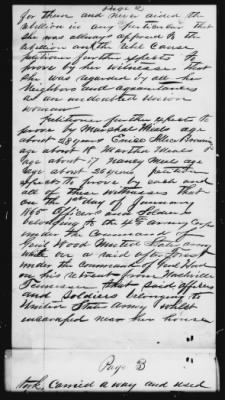 Page 2
for them and never aided the
rebellion in any particular that
she was always opposed to the
rebellion and the Rebel Cause
petitioner further expects to
prove by her witnesses that
she was regarded by all her
neighbors and acquaintances
as an undoubted Union
woman
Petitioner further expects to
prove by Marshal Mills age
about 28 years
age about Martha
age about 17 Nancy Mills age
age about 26 years petitioner
expects to prove by each and
all of these witnesses that
on the 1st day of January
1865 Officers and Soldiers
belonging to the U S Army Corps
under the Command of
Genl Wood United States army
while on a raid after
under the command of Genl Hood
on his retreat from Nashville
Tennessee that said officers
and Soldiers belonging to
United States Army whilst
encamped near her house
Page 3
took, carried away and used